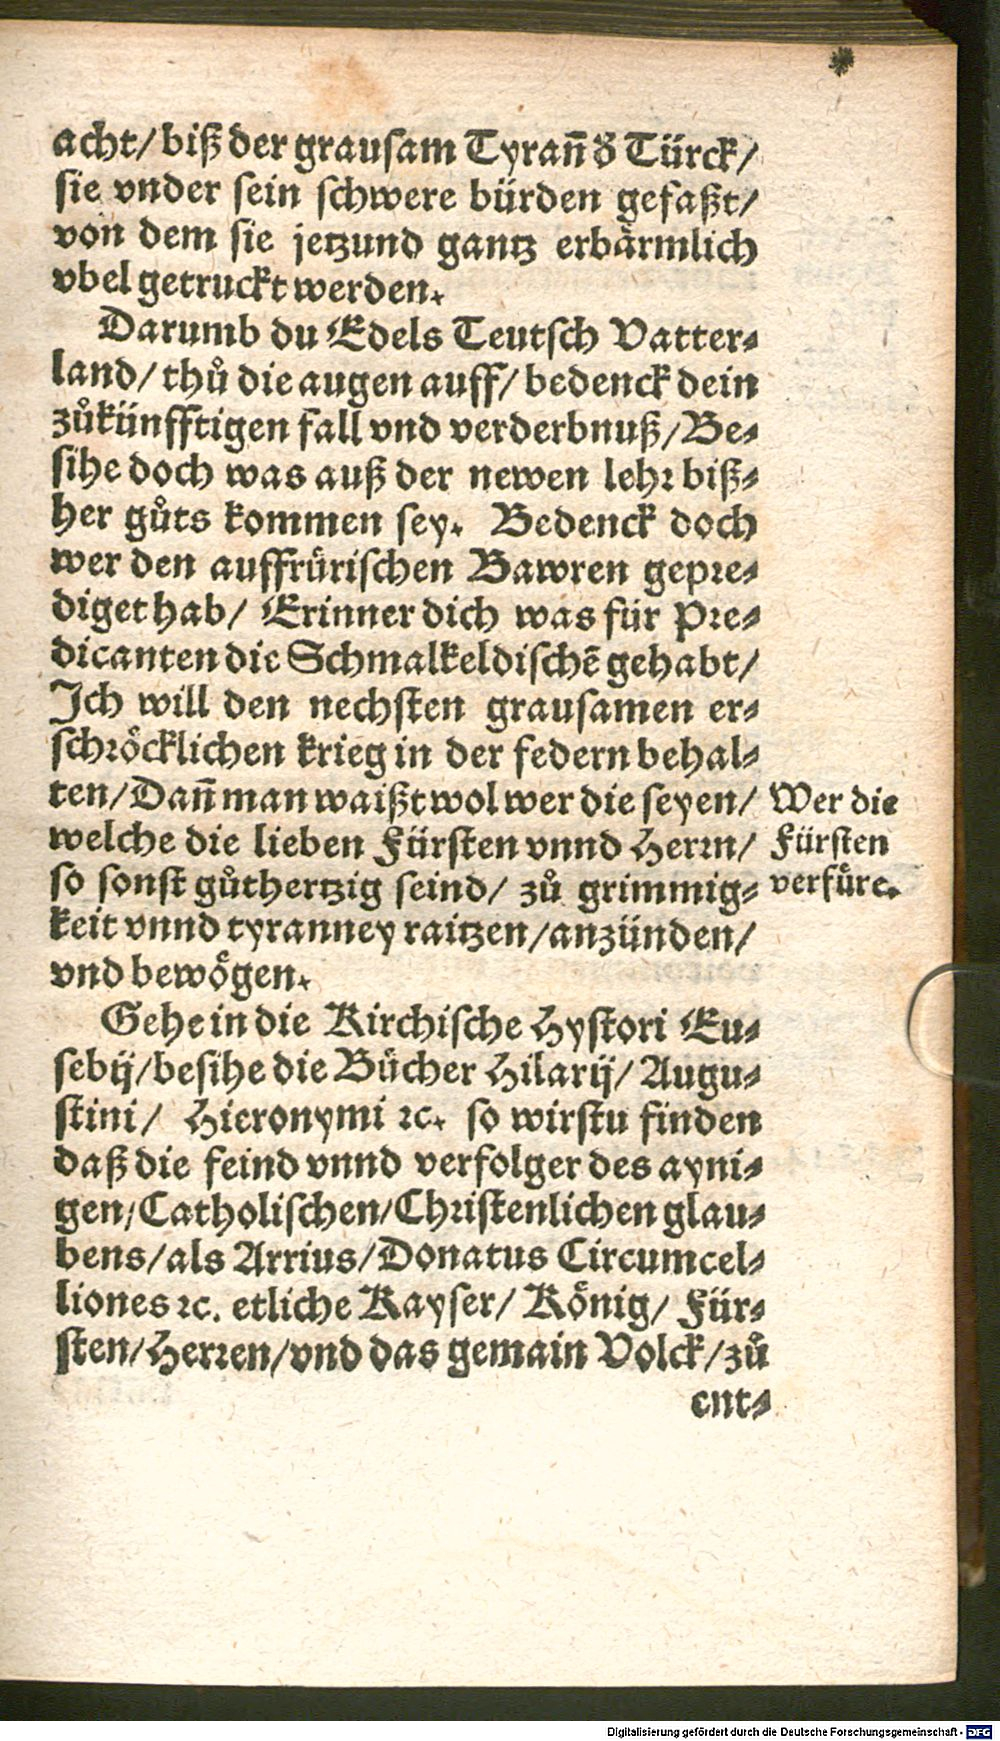 acht/ biß der grausam Tyrañ d̕ Türck/
sie vnder sein schwere bürden gefaßt/
von dem sie jetzund gantz erbärmlich
vbel getruckt werden.
Darumb du Edels Teutsch Vatter-
land/ thů die augen auff/ bedenck dein
zůkünfftigen fall vnd verderbnuß/ Be-
sihe doch was auß der newen lehr biß-
her gůts kommen sey. Bedenck doch
wer den auffrürischen Bawren gepre-
diget hab/ Erinner dich was für Pre-
dicanten die Schmalkeldischē gehabt/
Ich will den nechsten grausamen er-
schröcklichen krieg in der federn behal-
ten/ Dañ man waißt wol wer die seyen/
welche die lieben Fürsten vnnd Herrn/
so sonst gůthertzig seind/ zů grimmig-
keit vnnd tyranney raitzen/ anzünden/
vnd bewögen.
Wer die
Fürsten
verfüre.
Gehe in die Kirchische Hystori Eu-
sebij/ besihe die Bücher Hilarij/ Augu-
stini/ Hieronymi ꝛc. so wirstu finden
daß die feind vnnd verfolger des ayni-
gen/ Catholischen/ Christenlichen glau-
bens/ als Arrius/ Donatus Circumcel-
liones ꝛc. etliche Kayser/ König/ Für-
sten/ Herren/ vnd das gemain Volck/ zů
ent-
Digitalisierung gefördert durch die Deutsche Forschungsgemeinschaft - DFG